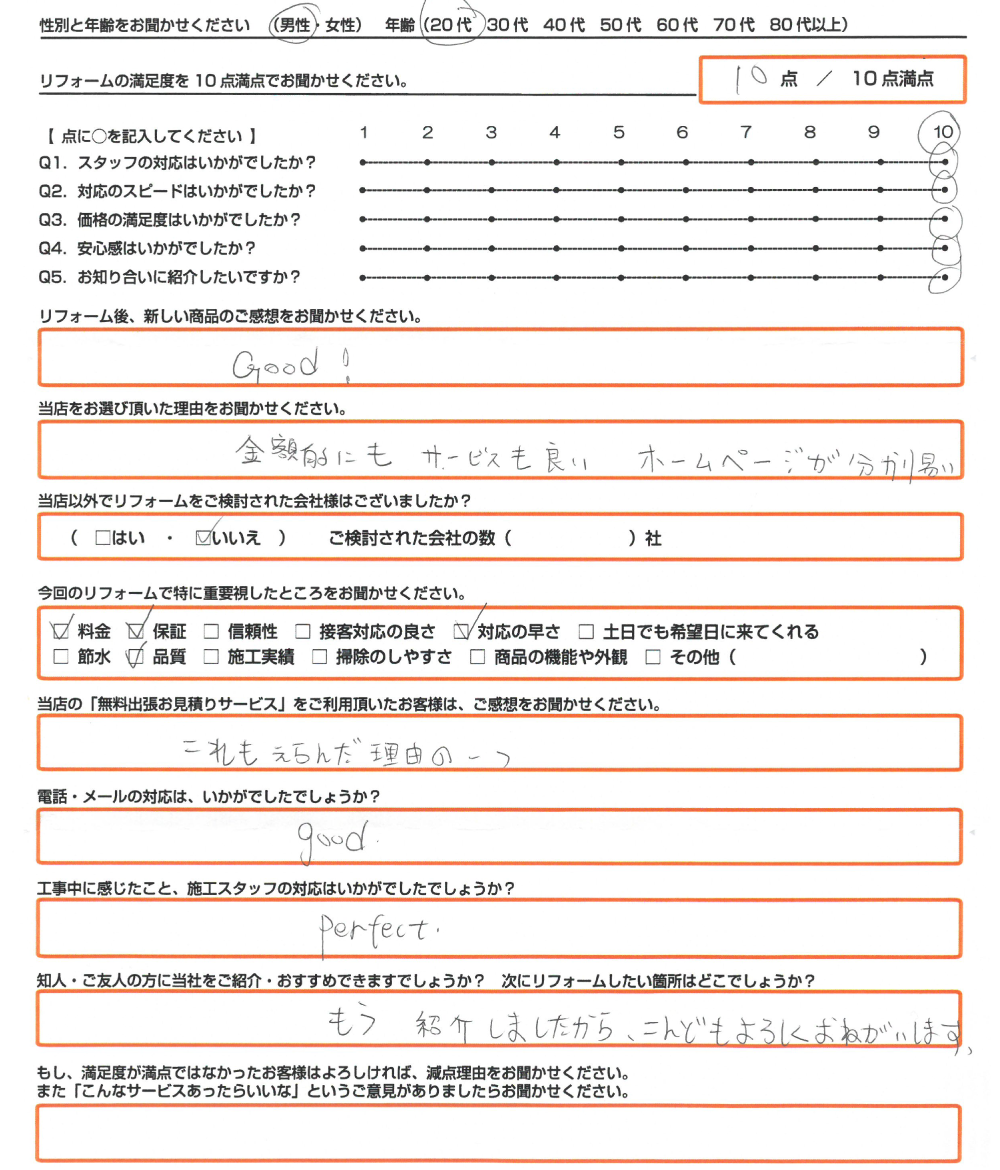 性別と年齢をお聞かせください (男性・女性) 年齢(20代 30代 40代 50代 60代 70代 80代以上)
リフォームの満足度を10点満点でお聞かせください。 10 点 / 10点満点
【 点に○を記入してください 】 1 2 3 4 5 6 7 8 9 10
Q1. スタッフの対応はいかがでしたか?
Q2. 対応のスピードはいかがでしたか?
Q3. 価格の満足度はいかがでしたか?
Q4. 安心感はいかがでしたか?
Q5. お知り合いに紹介したいですか?
リフォーム後、新しい商品のご感想をお聞かせください。
Good !
当店をお選び頂いた理由をお聞かせください。
金額的にも サービスも良い ホームページが分かり易い
当店以外でリフォームをご検討された会社様はございましたか?
( □はい ・ ☑いいえ ) ご検討された会社の数( )社
今回のリフォームで特に重要視したところをお聞かせください。
☑ 料金 ☑ 保証 □ 信頼性 □ 接客対応の良さ ☑ 対応の早さ □ 土日でも希望日に来てくれる
□ 節水 ☑ 品質 □ 施工実績 □ 掃除のしやすさ □ 商品の機能や外観 □ その他( )
当店の「無料出張お見積りサービス」をご利用頂いたお客様は、ご感想をお聞かせください。
これもえらんだ理由の一つ
電話・メールの対応は、いかがでしたでしょうか?
good.
工事中に感じたこと、施工スタッフの対応はいかがでしたでしょうか?
perfect.
知人・ご友人の方に当社をご紹介・おすすめできますでしょうか? 次にリフォームしたい箇所はどこでしょうか?
もう 紹介しましたから、こんどもよろしくおねがいします。
もし、満足度が満点ではなかったお客様はよろしければ、減点理由をお聞かせください。
また「こんなサービスあったらいいな」というご意見がありましたらお聞かせください。